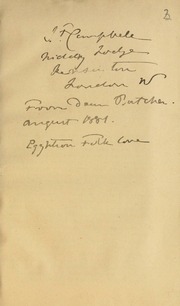 3
J F Campbell
Niddry Lodge
Kensington
London W
From Dean Butcher.
August 1881.
Egyptian Folk Lore